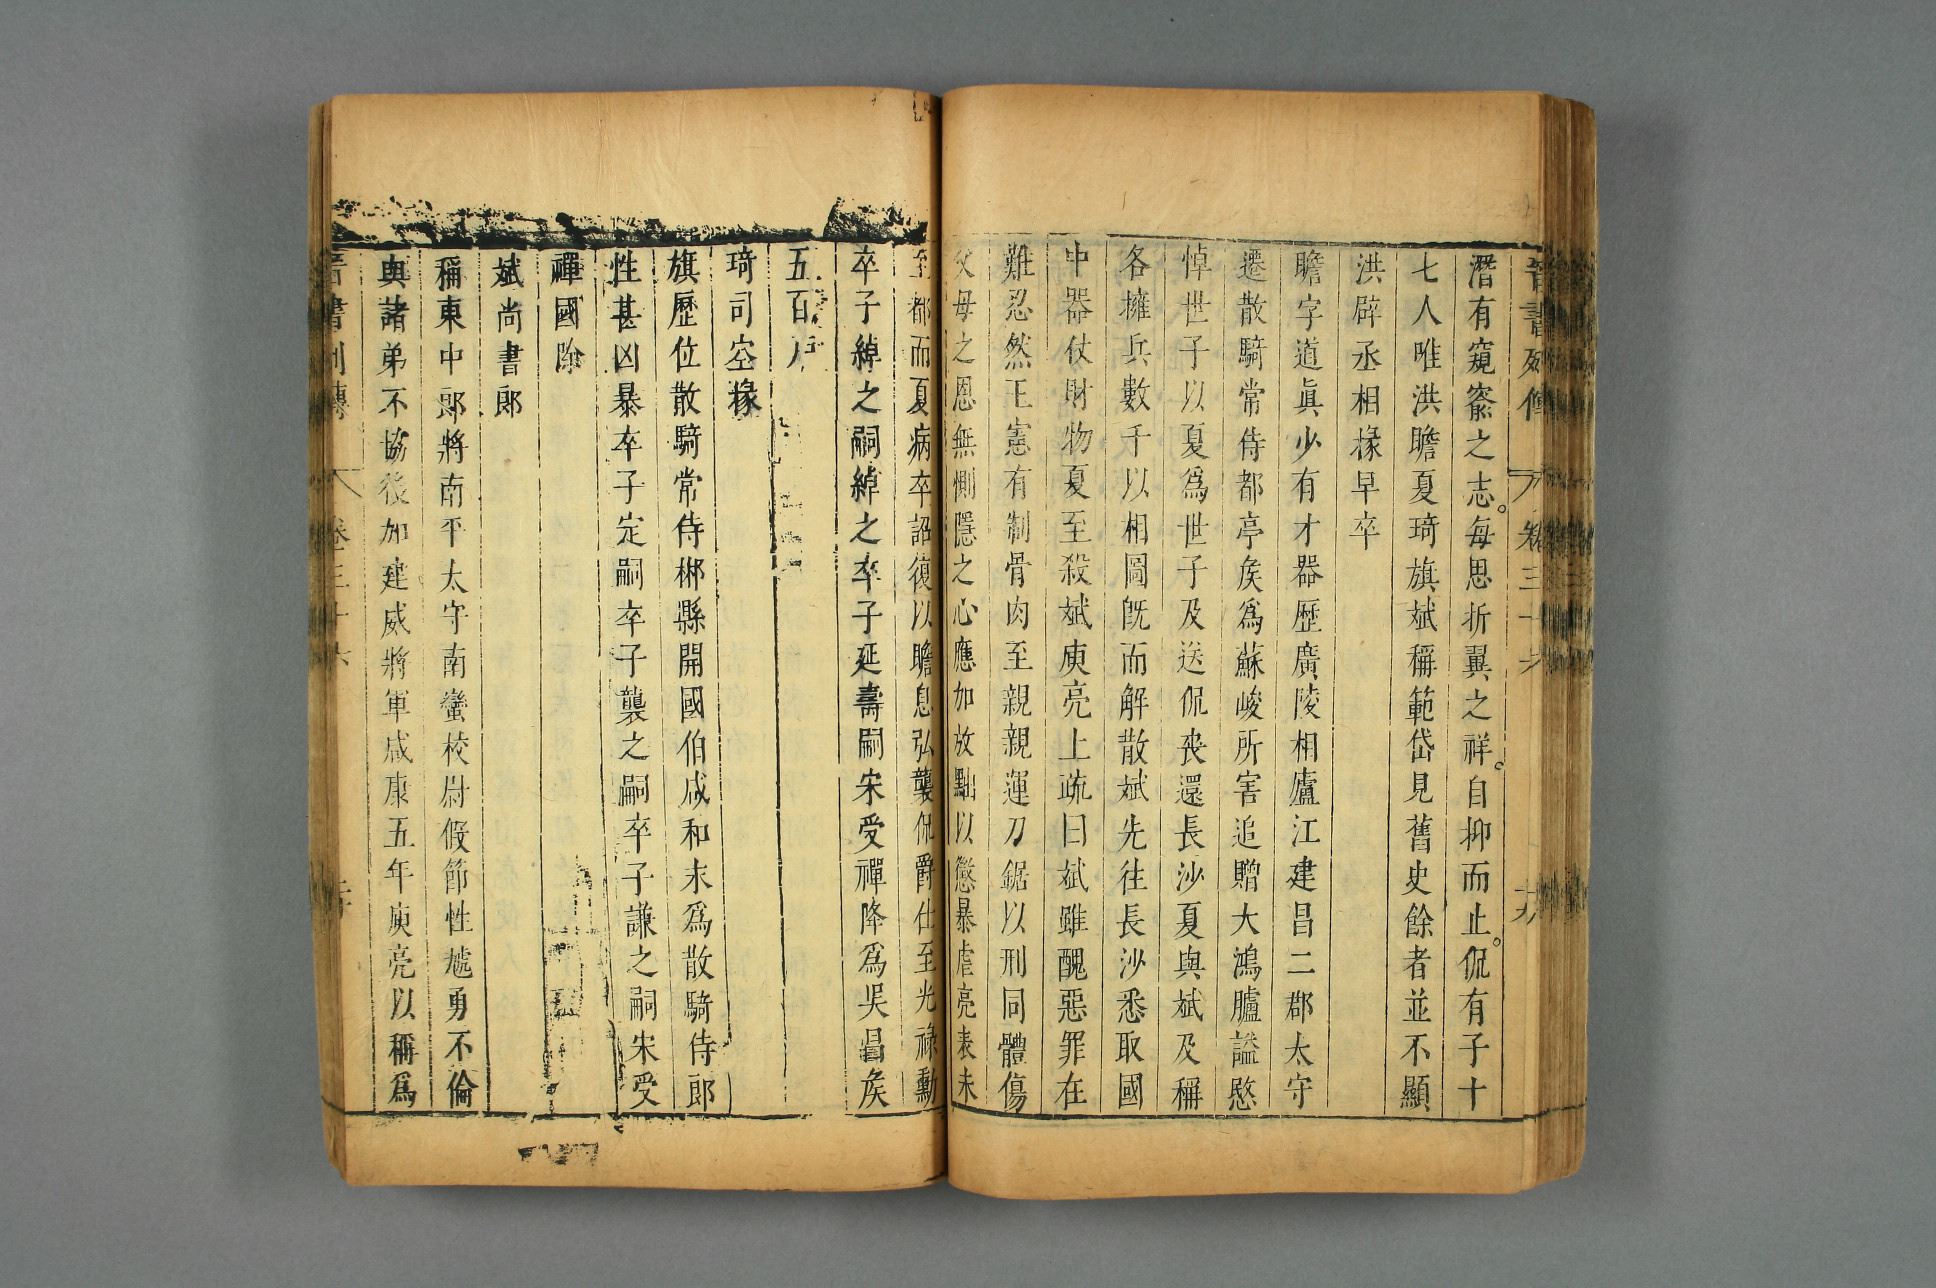 晉書列傳 卷三十六 十九
潛有窺窬之志每思折翼之祥自抑而止侃有子十
七人唯洪瞻夏琦旗斌稱範岱見舊史餘者並不顯
洪辟丞相掾早卒
瞻字道眞少有才器歷廣陵相廬江建昌二郡太守
遷散騎常侍都亭矦爲蘇峻所害追贈大鴻臚謚愍
悼世子以夏爲世子及送侃喪還長沙夏與斌及稱
各擁兵數千以相圖旣而解散斌先往長沙悉取國
中器仗財物夏至殺斌庾亮上疏曰斌雖醜惡罪在
難忍然王憲有制骨肉至親親運刀鋸以刑同體傷
父母之恩無惻隱之心應加放黜以懲暴虐亮表未
至都而夏病卒詔復以瞻息弘襲侃爵仕至光祿勳
卒子綽之嗣綽之卒子延壽嗣宋受禪降爲吳昌矦
五百戶
琦司空掾
旗歷位散騎常侍郴縣開國伯咸和末爲散騎侍郎
性甚凶暴卒子定嗣卒子襲之嗣卒子謙之嗣宋受
禪國除
斌尚書郎
稱東中郎將南平太守南蠻校尉假節性虓勇不倫
與諸弟不協後加建威將軍咸康五年庾亮以稱爲
晉書列傳 卷三十六 二十